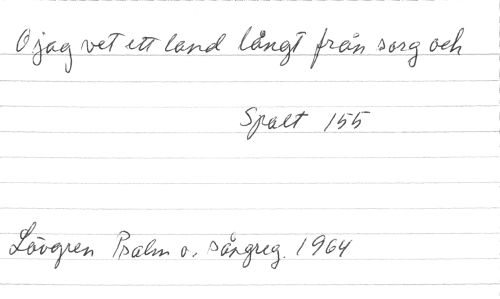 O jag vet ett land långt från sorg och
Spalt 155
Lövgren Psalm o. sångreg. 1964